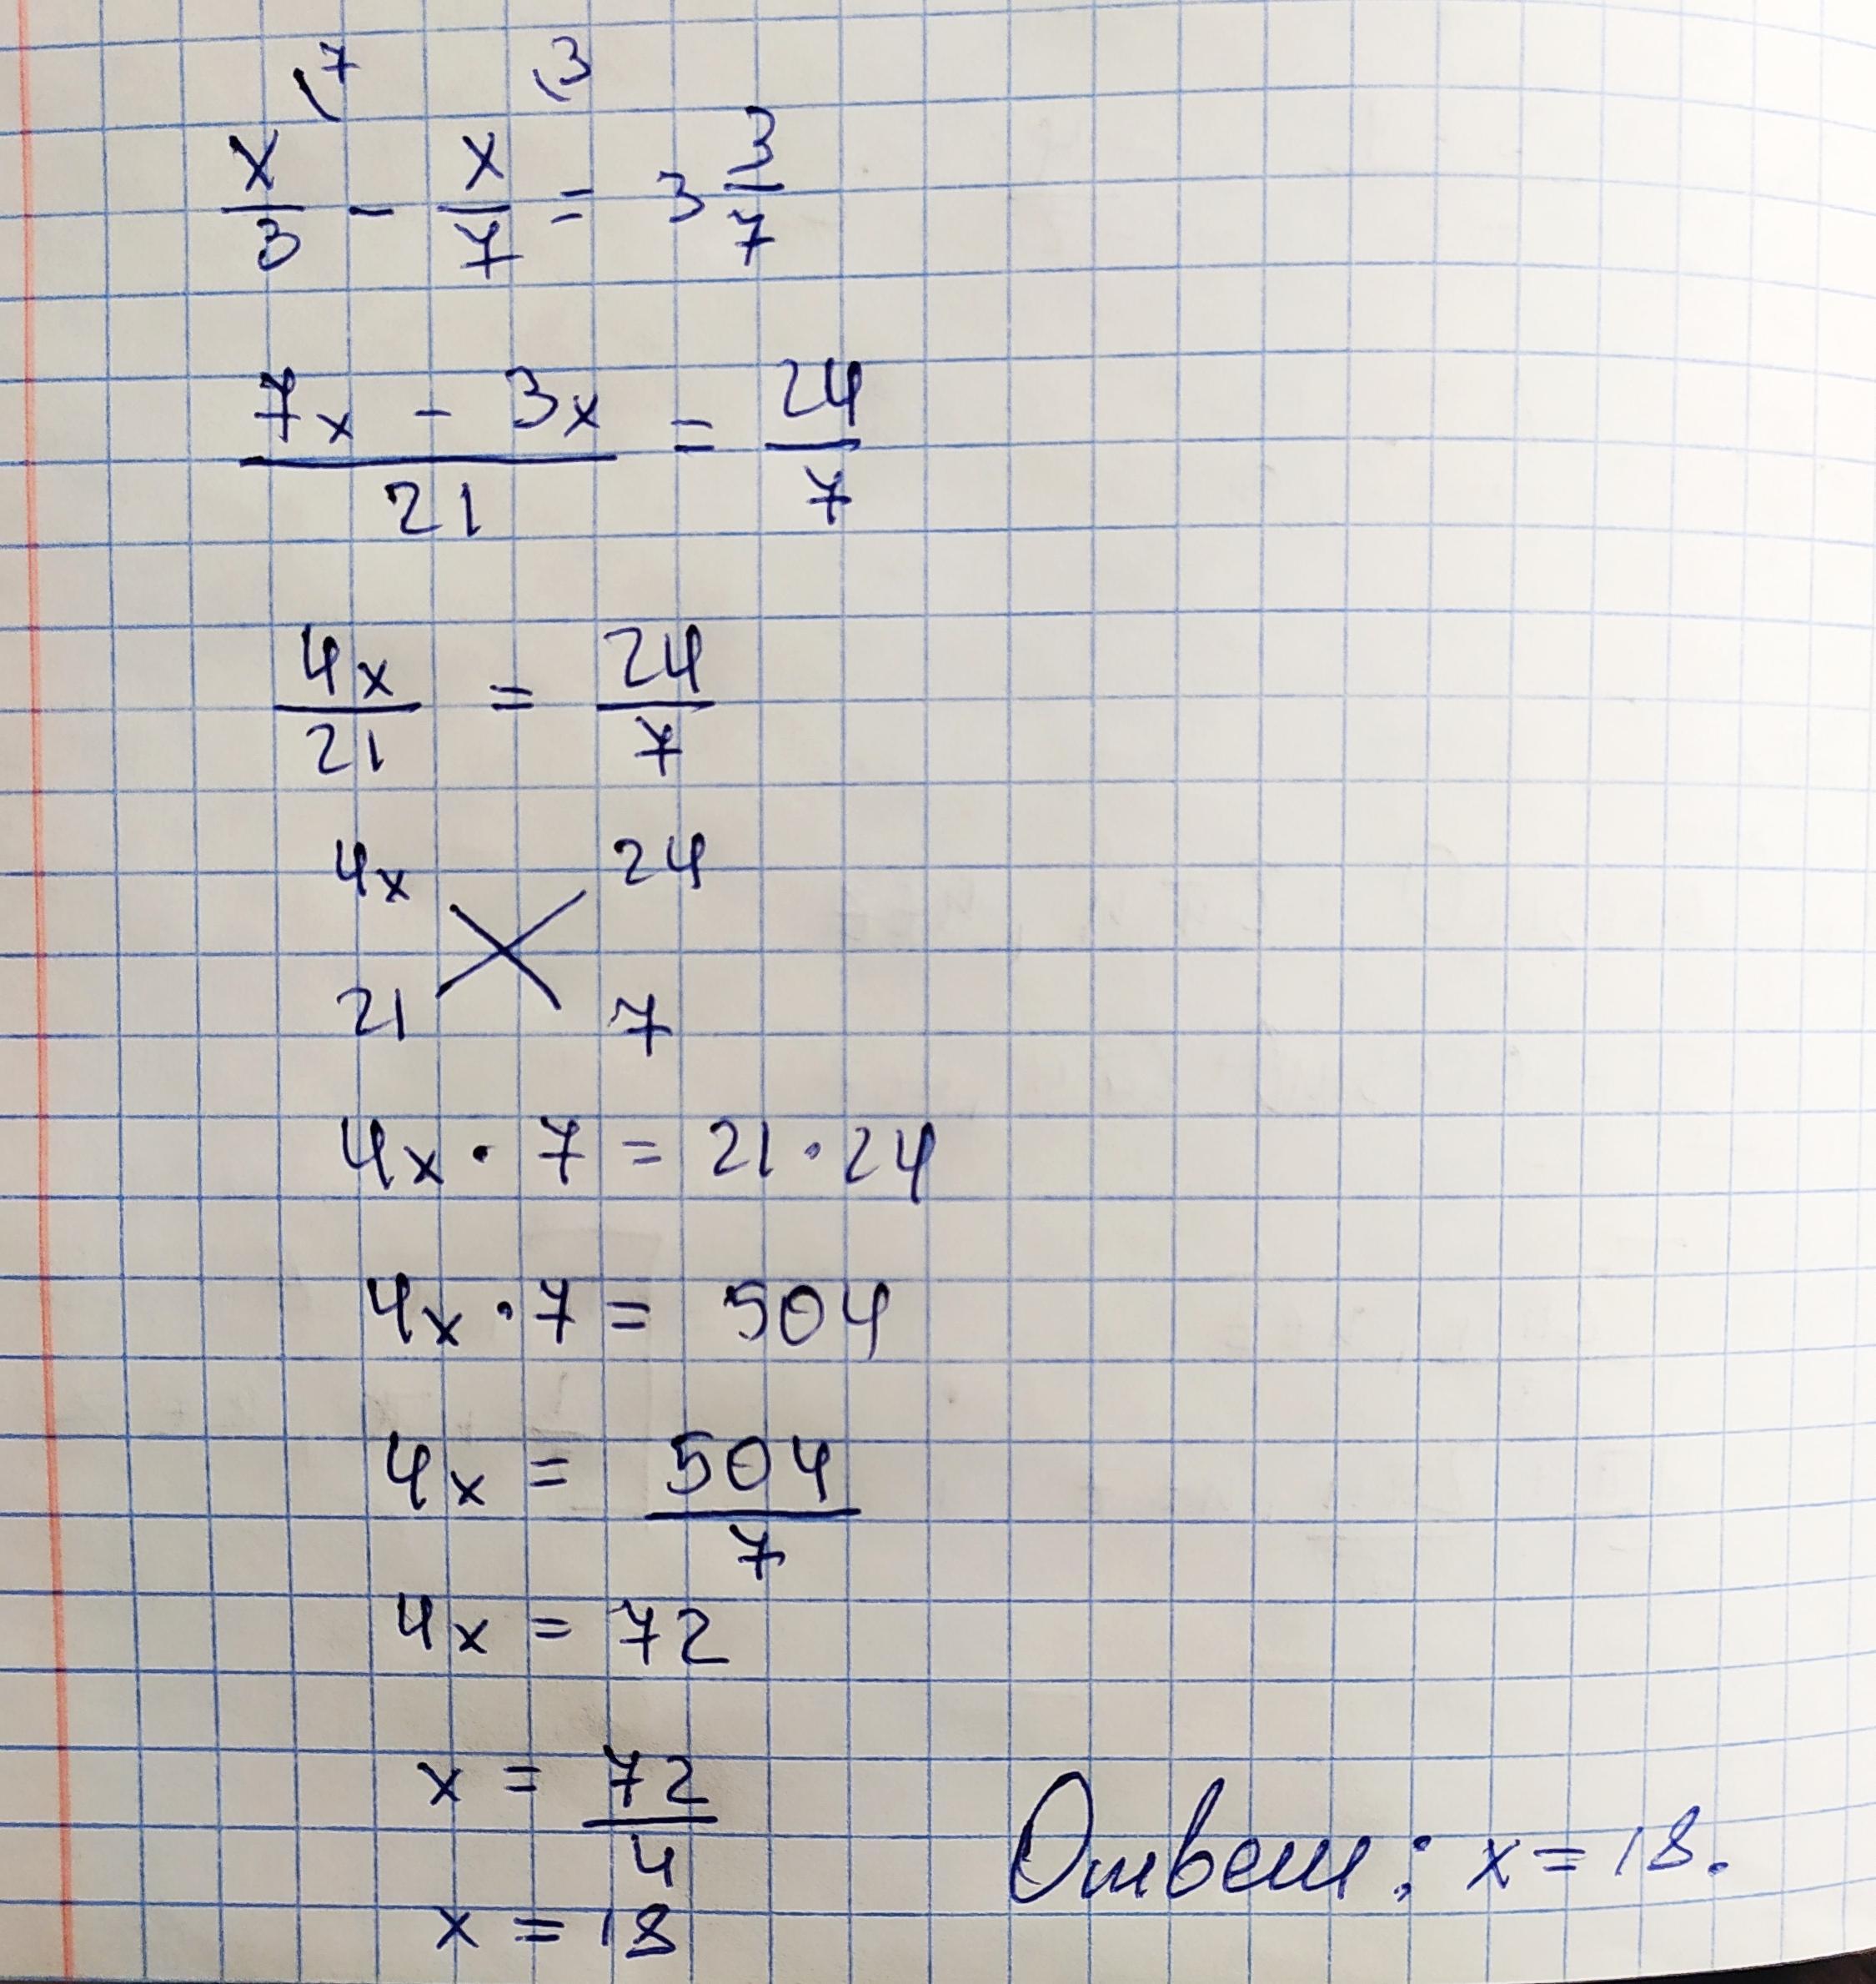 x/3 \7 - x/7 \3 = 3 3/7
(7x - 3x)/21 = 24/7
4x/21 = 24/7
4x 24
21 7
4x · 7 = 21 · 24
4x · 7 = 504
4x = 504/7
4x = 72
x = 72/4
x = 18
Ответ: x = 18.